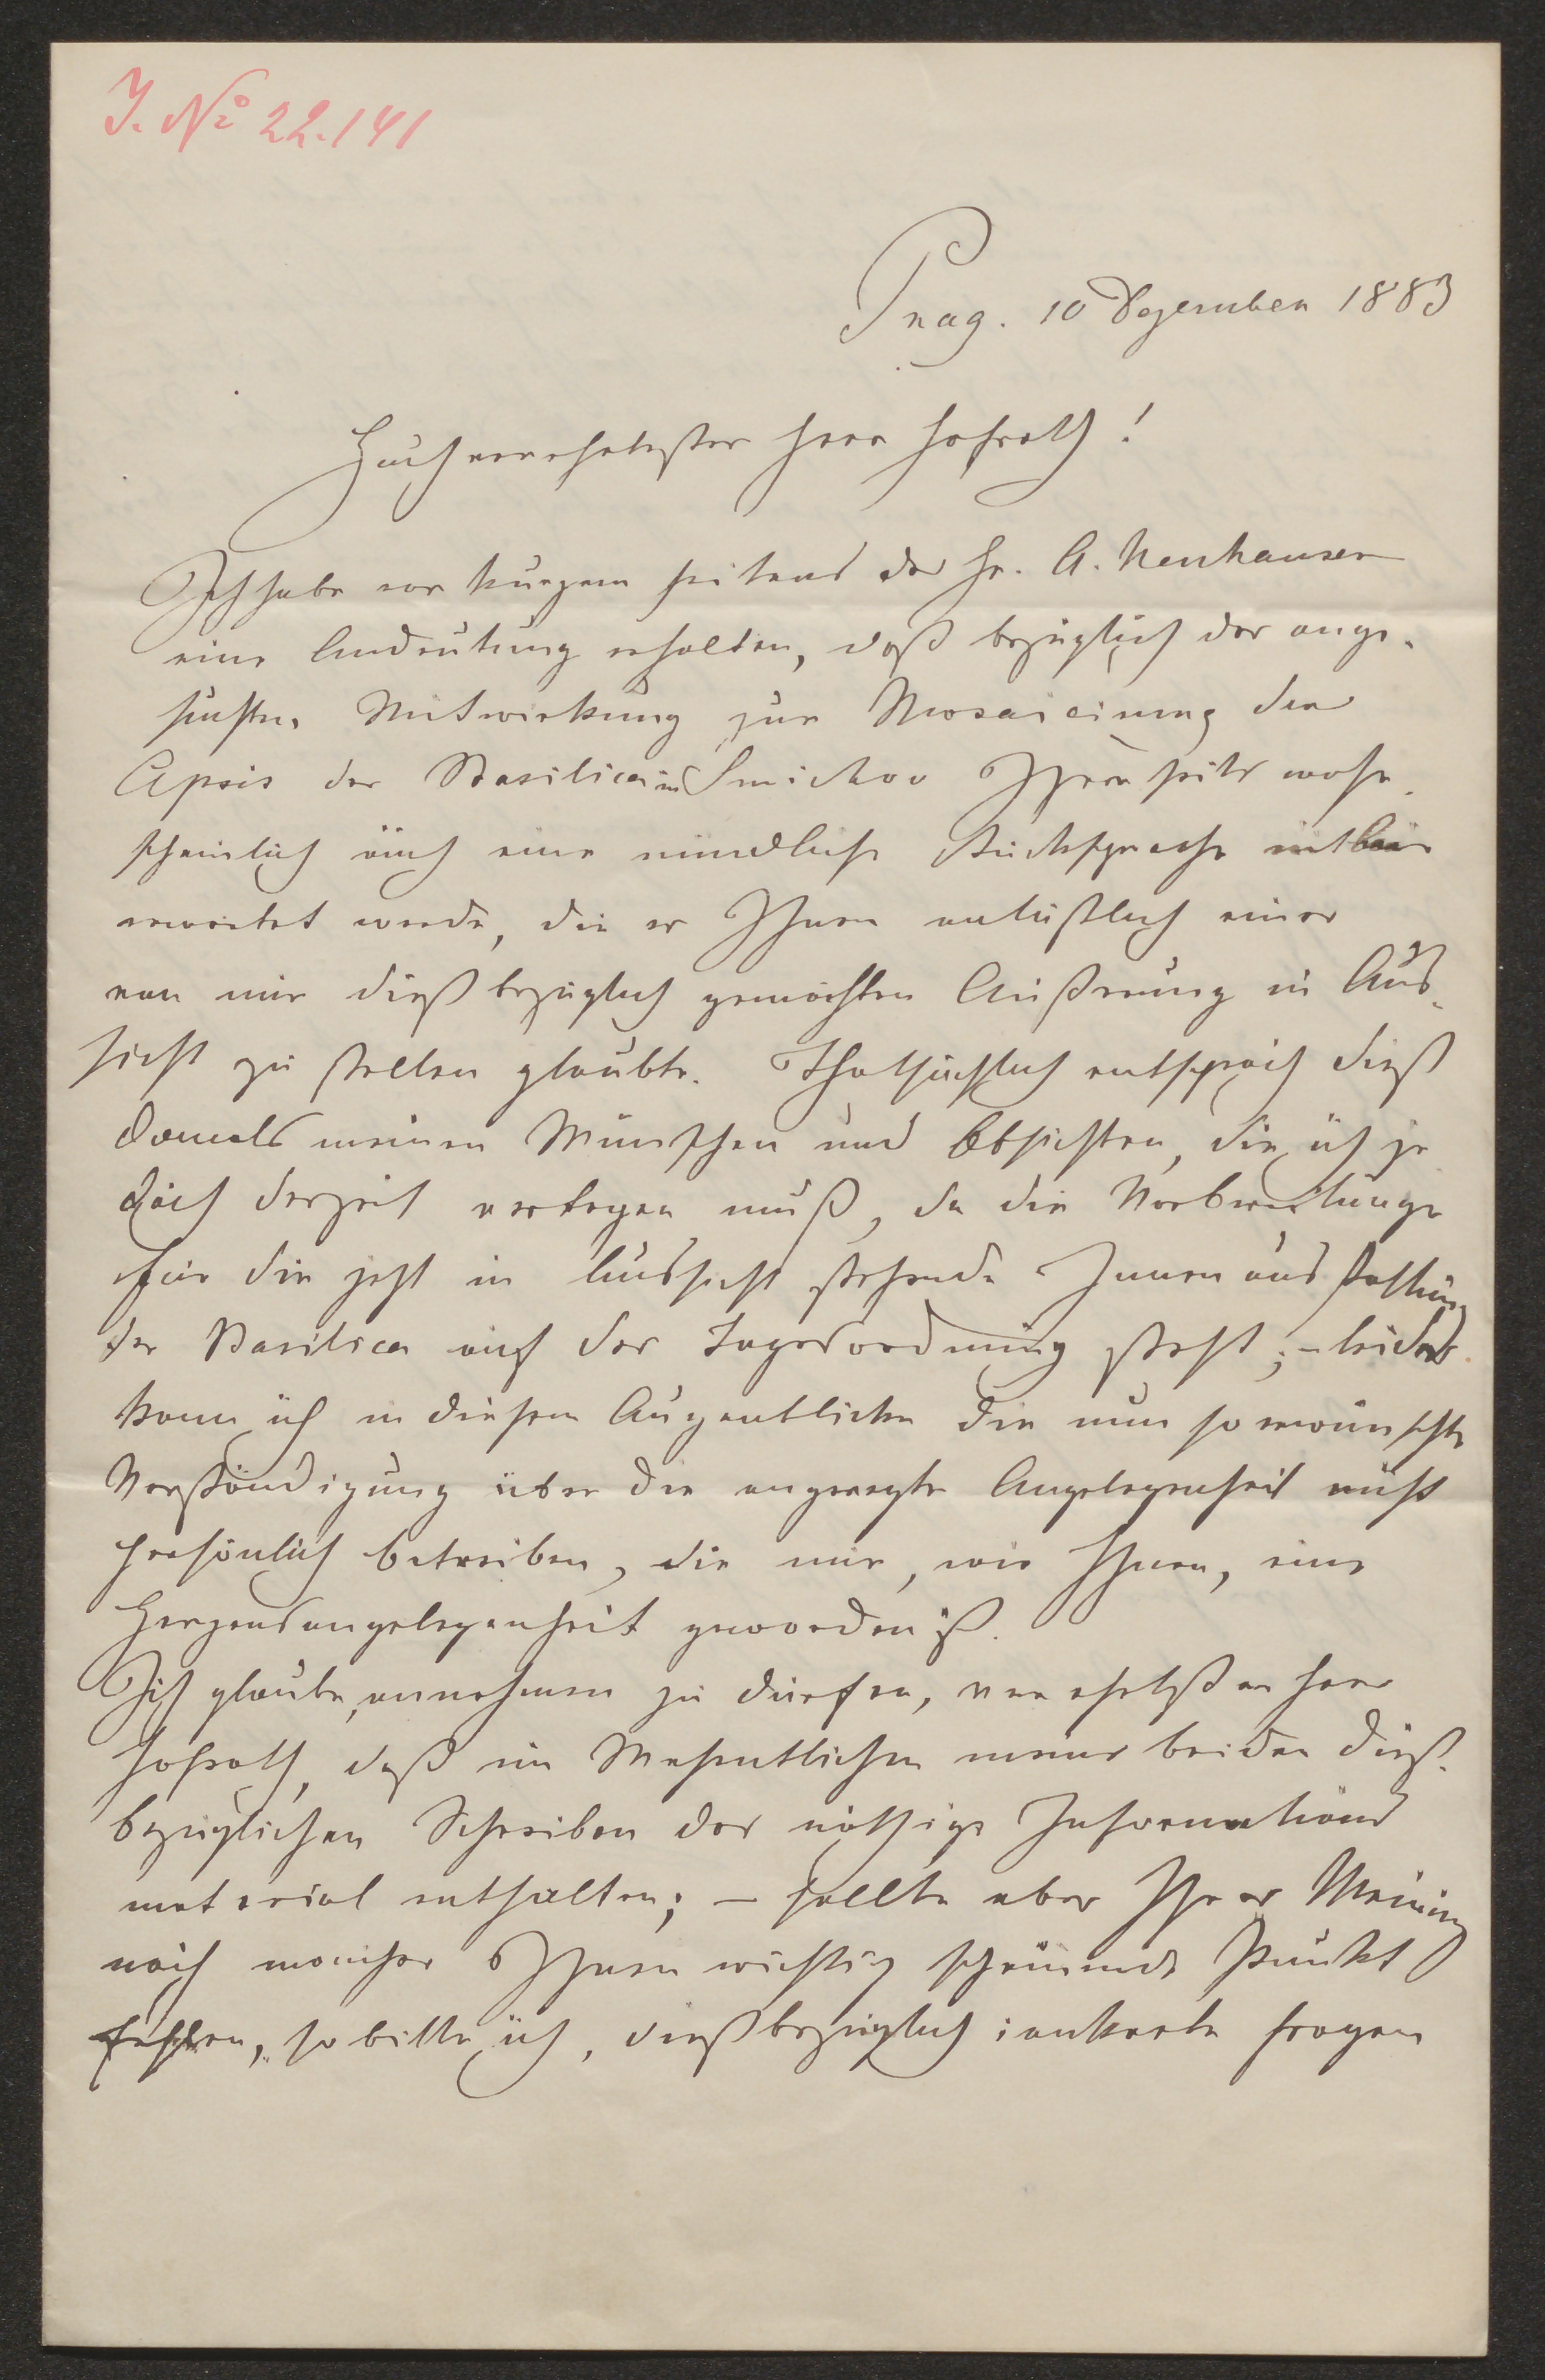 J. No 22.141
Prag. 10 Dezember 1883
Hochverehrtester Herr Hofrath!
Ich habe vor kurzem seitens des Hr. A. Neuhauser
eine Andeutung erhalten, daß bezüglich der ange-
suchten Mitwirkung zur Mosaicirung der
Apsis der Basilica in Smichov Ihrerseits wahr-
scheinlich auch eine mündliche Rücksprache
erwartet werde, die er Ihnen anläßlich einer
von mir dießbezüglich gemachten Äußerung in Aus-
sicht zu stellen glaubte. Thatsächlich entsprach dieß
damals meinen Wünschen und Absichten, die ich je
doch derzeit vertagen muß, da die Vorbereitunge
für die jetzt in Aussicht stehende Innenausstattung
der Basilica auf der Tagesordnung steht; – leider
kann ich in diesem Augenblicke die nun so erwünschte
Verständigung über die angeregte Angelegenheit nicht
persönlich betreiben, die mir, wie Ihnen, eine
Herzensangelegenheit geworden ist.
Ich glaube annehmen zu dürfen, verehrtester Herr
Hofrath, daß im Wesentlichen meine beiden dieß-
bezüglichen Schreiben das nöthige Informations
material enthalten; – sollte aber Ihrer Meinung
nach mancher Ihnen wichtig scheinende Punkt
fehlen, so bitte ich, dießbezüglich concrete Fragen